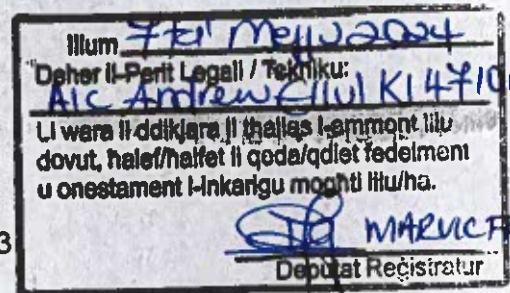 Illum 7 ta' Mejju 2024
Deher il-Perit Legali / Tekniku:
AIC Andrew Ellul KI 4710
Li wara li ddikjara li tħallas l-ammont lilu
dovut, ħalef/ħalfet li qeda/qdiet fedelment
u onestament l-inkarigu mogħti lilu/ha.
MARVIC
3
Deputat Reġistratur